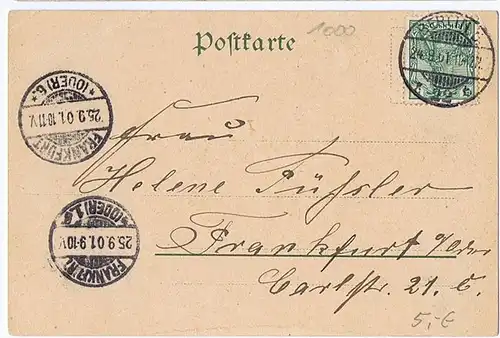 Postkarte
1000
BERLIN
24.9.01
FRANKFURT
25.9.01.10-11V.
*(ODER)6.*
Frau
Helene
FRANKFURT
25.9.01.9-10V.
*(ODER)1.
Frankfurt a/Oder
Carlstr. 21. I.
5,-€